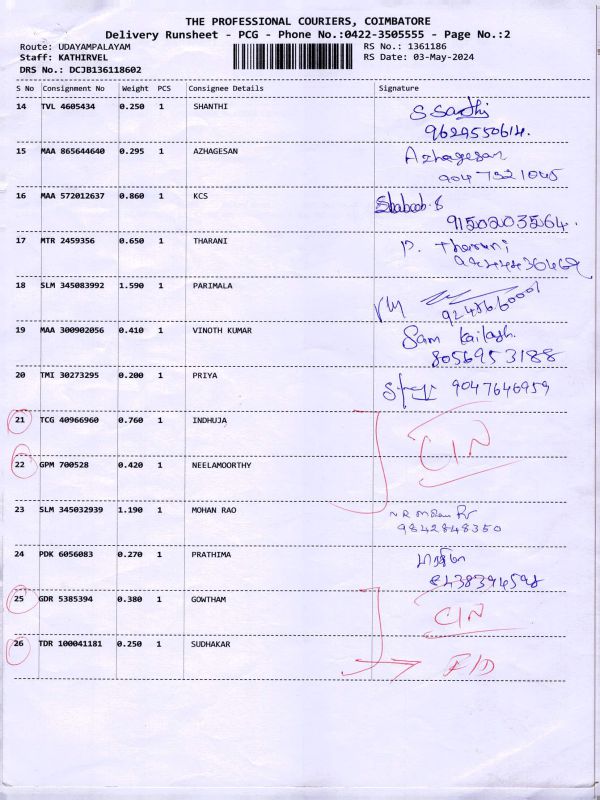 THE PROFESSIONAL COURIERS, COIMBATORE
Delivery Runsheet - PCG - Phone No.:0422-3505555 - Page No.:2
Route: UDAYAMPALAYAM RS No.: 1361186
Staff: KATHIRVEL RS Date: 03-May-2024
DRS No.: DCJB136118602
S No Consignment No Weight PCS Consignee Details Signature
14 TVL 4605434 0.250 1 SHANTHI
9629550614.
15 MAA 865644640 0.295 1 AZHAGESAN Azhagesan
9047521045
16 MAA 572012637 0.860 1 KCS
9150203564.
17 MTR 2459356 0.650 1 THARANI P. Tharani
18 SLM 345083992 1.590 1 PARIMALA
19 MAA 300902056 0.410 1 VINOTH KUMAR Sam Kailash.
8056953188
20 TMI 30273295 0.200 1 PRIYA 9047646959
21 TCG 40966960 0.760 1 INDHUJA CIN
22 GPM 700528 0.420 1 NEELAMOORTHY
23 SLM 345032939 1.190 1 MOHAN RAO
9842848350
24 PDK 6056083 0.270 1 PRATHIMA
25 GDR 5385394 0.380 1 GOWTHAM CIN
26 TDR 100041181 0.250 1 SUDHAKAR F/D